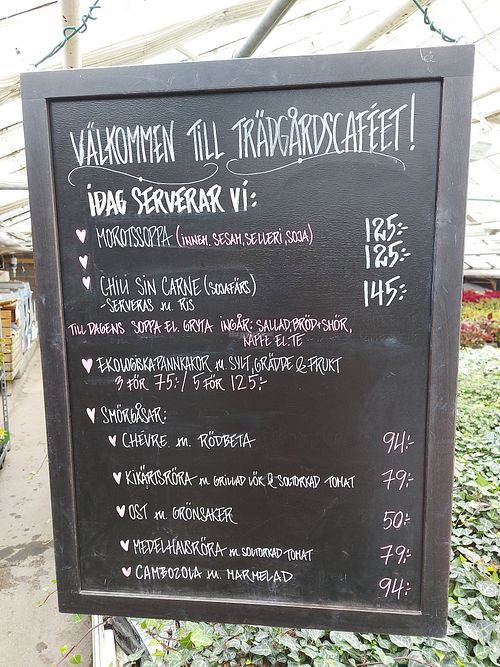 VÄLKOMMEN TILL TRÄDGÅRDSCAFÉET!
IDAG SERVERAR VI:
MOROTSSOPPA (INNEH. SESAM, SELLERI, SOJA) 125:-
125:-
CHILI SIN CARNE (SOJAFÄRS) 145:-
-SERVERAS M. RIS
TILL DAGENS SOPPA EL. GRYTA INGÅR: SALLAD, BRÖD+SMÖR,
KAFFE EL. TE
EKOLOGISKA PANNKAKOR M. SYLT, GRÄDDE & FRUKT
3 FÖR 75:-/ 5 FÖR 125:-
SMÖRGÅSAR:
CHÈVRE M. RÖDBETA 94:-
KIKÄRTSRÖRA M. GRILLAD LÖK & SOLTORKAD TOMAT 79:-
OST M. GRÖNSAKER 50:-
MEDELHAVSRÖRA M. SOLTORKAD TOMAT 79:-
CAMBOZOLA M. MARMELAD 94:-